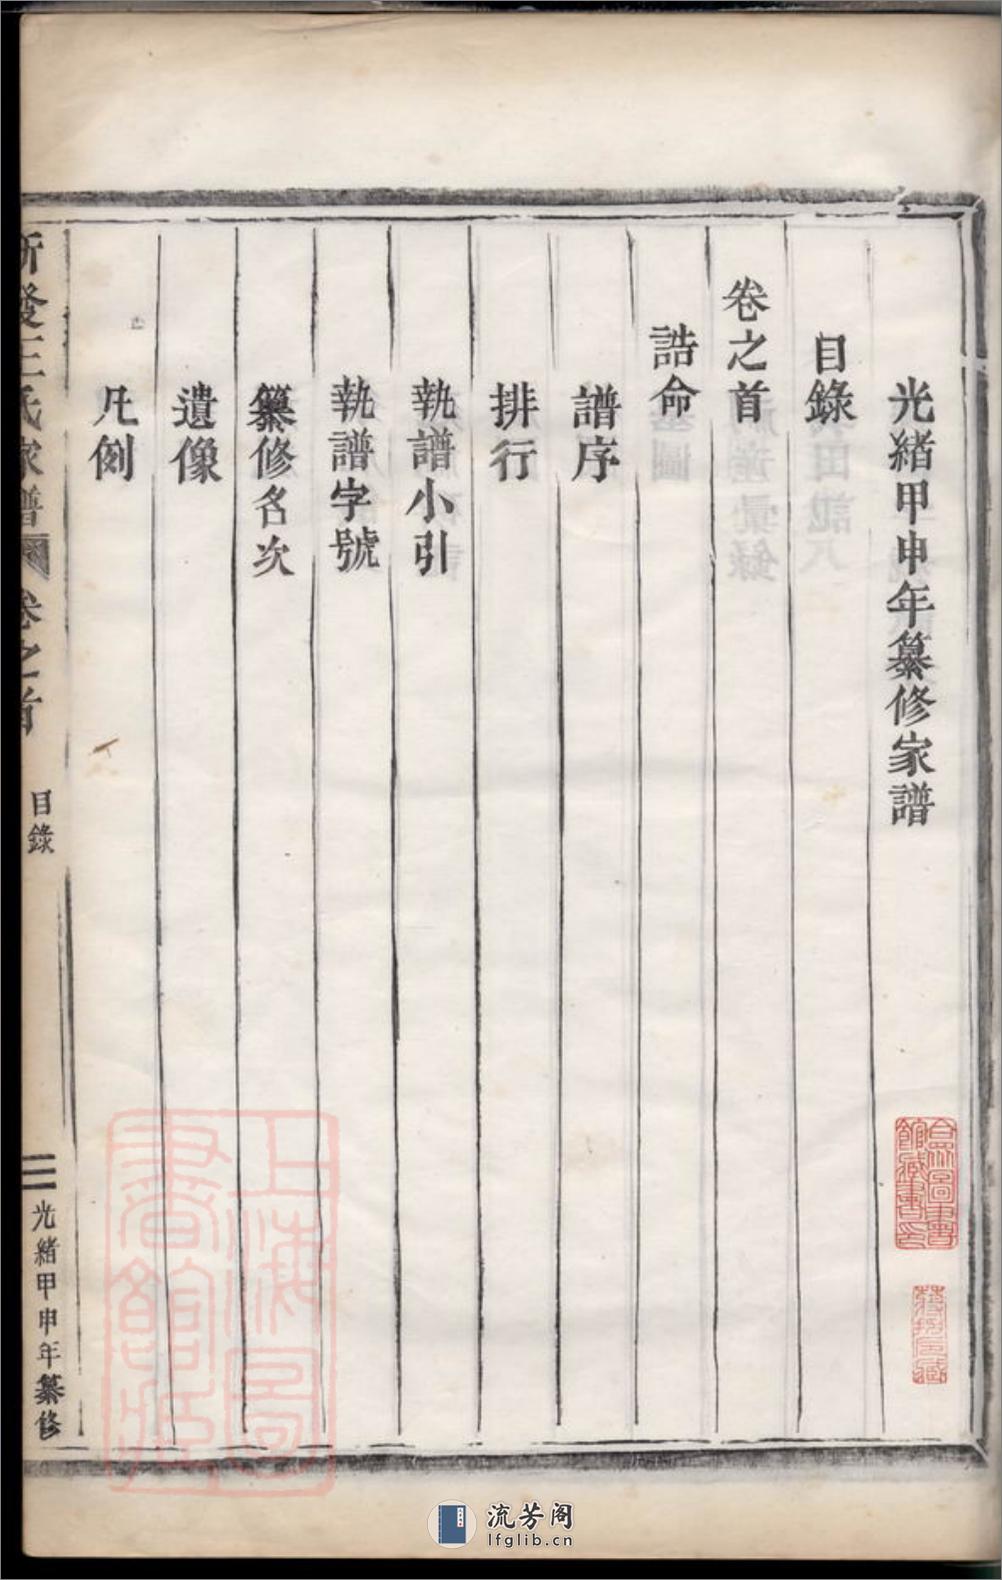 光緒甲申年纂修家譜
目錄
卷之首
誥命
譜序
排行
執譜小引
執譜字號
纂修名次
遺像
凡例
王氏家譜 卷之首
目錄
光緒甲申年纂修
上海圖書館藏
圖書館藏書
流芳阁
lfglib.cn